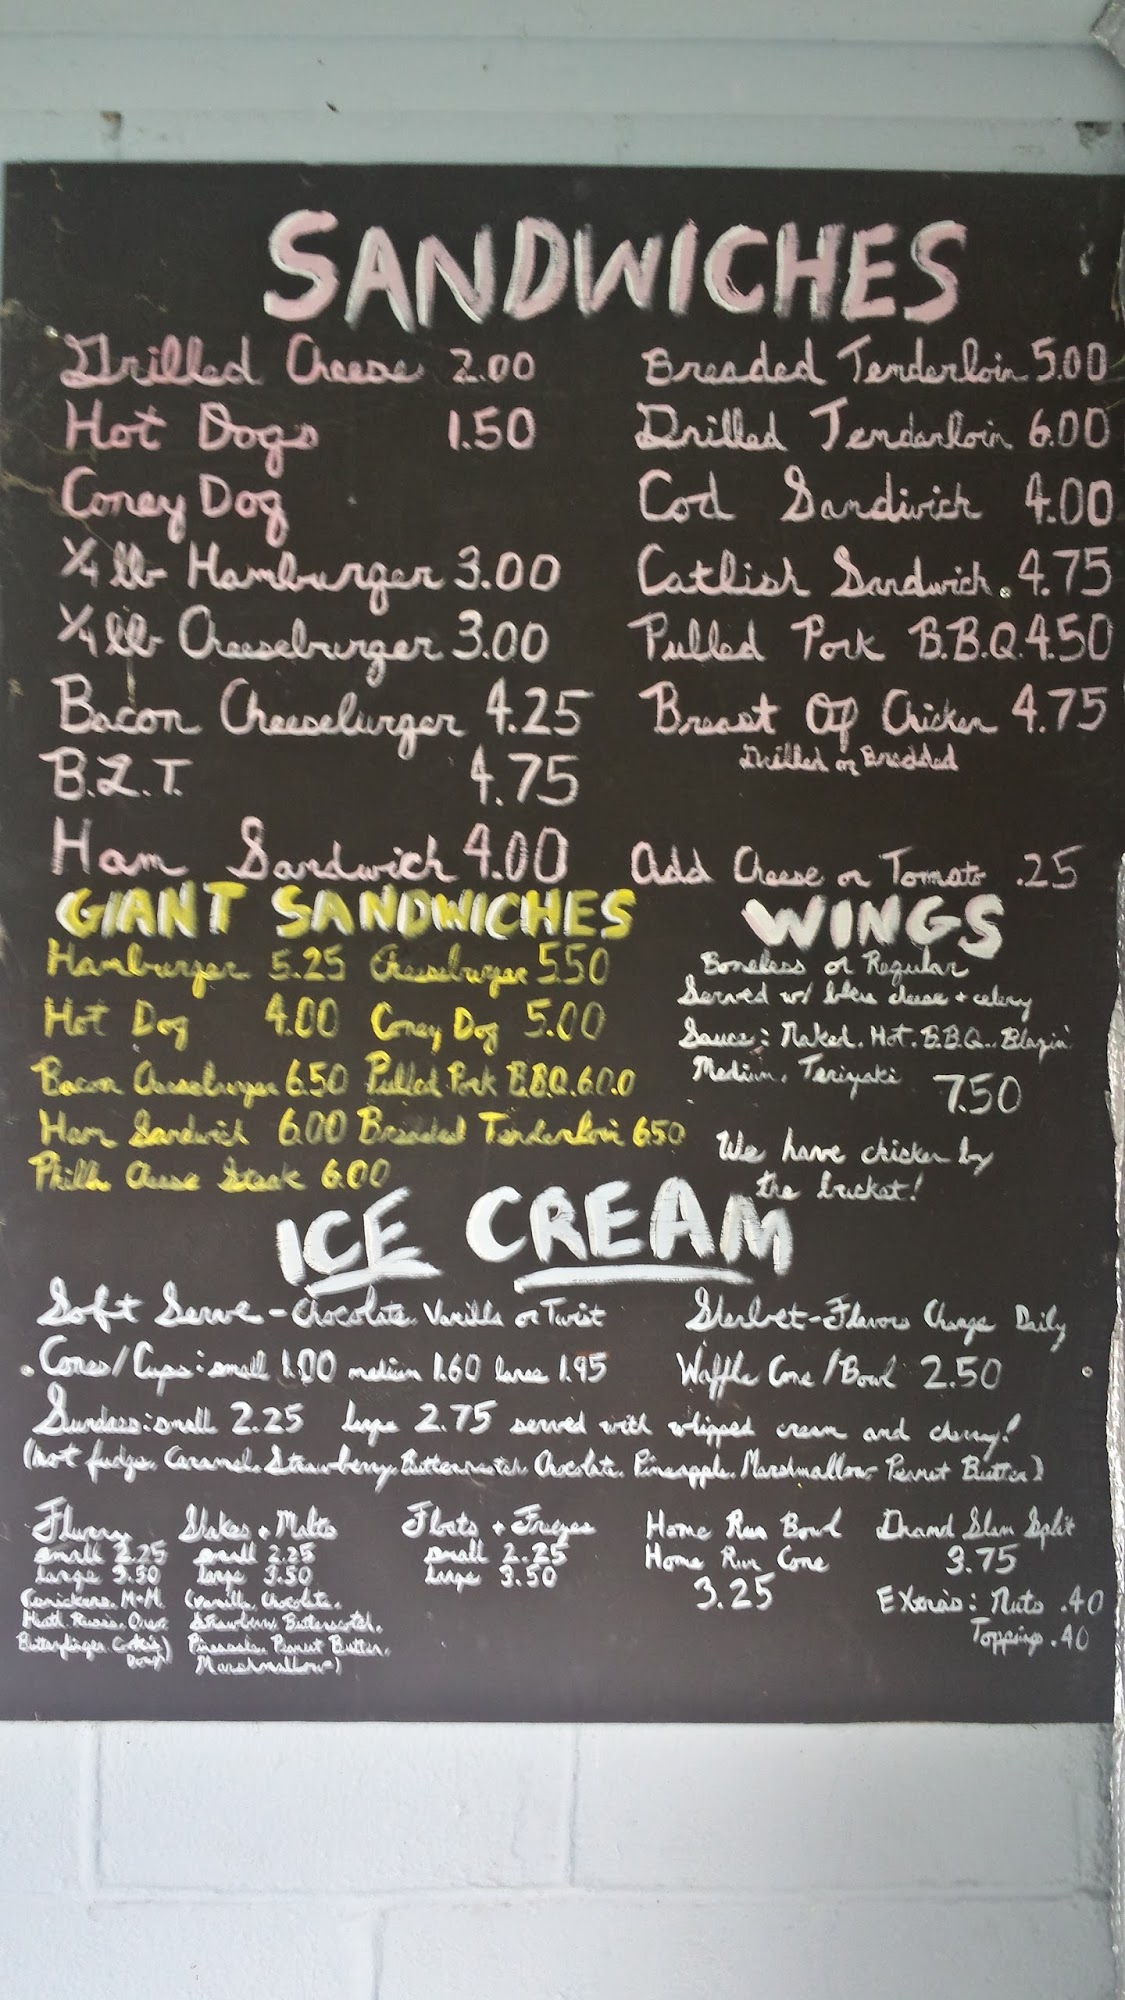 SANDWICHES
Grilled Cheese 2.00
Hot Dogs 1.50
Coney Dog
1/4 lb Hamburger 3.00
1/4 lb Cheeseburger 3.00
Bacon Cheeseburger 4.25
B.L.T. 4.75
Ham Sandwich 4.00
Breaded Tenderloin 5.00
Grilled Tenderloin 6.00
Cod Sandwich 4.00
Catfish Sandwich. 4.75
Pulled Pork B.B.Q. 4.50
Breast Of Chicken 4.75
Grilled or Breaded
Add Cheese or Tomato .25
GIANT SANDWICHES
Hamburger 5.25 Cheeseburger 5.50
Hot Dog 4.00 Coney Dog 5.00
Bacon Cheeseburger 6.50 Pulled Pork B.B.Q. 6.00
Ham Sandwich 6.00 Breaded Tenderloin 6.50
Philly Cheese Steak 6.00
WINGS
Boneless or Regular
Served w/ bleu cheese + celery
Sauce: Naked, Hot, B.B.Q., Blazin'
Medium, Teriyaki 7.50
We have chicken by
the bucket!
ICE CREAM
Soft Serve - Chocolate, Vanilla or Twist
Cones/Cups: small 1.00 medium 1.60 large 1.95
Sherbet - Flavors Change Daily
Waffle Cone/Bowl 2.50
Sundaes: small 2.25 large 2.75 served with whipped cream and cherry!
(hot fudge, Caramel, Strawberry, Butterscotch, Chocolate, Pineapple, Marshmallow Peanut Butter)
Flurry
small 2.25
large 3.50
M+M,
Heath, Oreo,
Butterfinger, Cookie
Dough)
Shakes + Malts
small 2.25
large 3.50
(vanilla, Chocolate,
Strawberry, Butterscotch,
Pineapple, Peanut Butter,
Marshmallow)
Floats + Freezes
small 2.25
large 3.50
Home Run Bowl
Home Run Cone
3.25
Grand Slam Split
3.75
Extras: Nuts .40
Topping .40